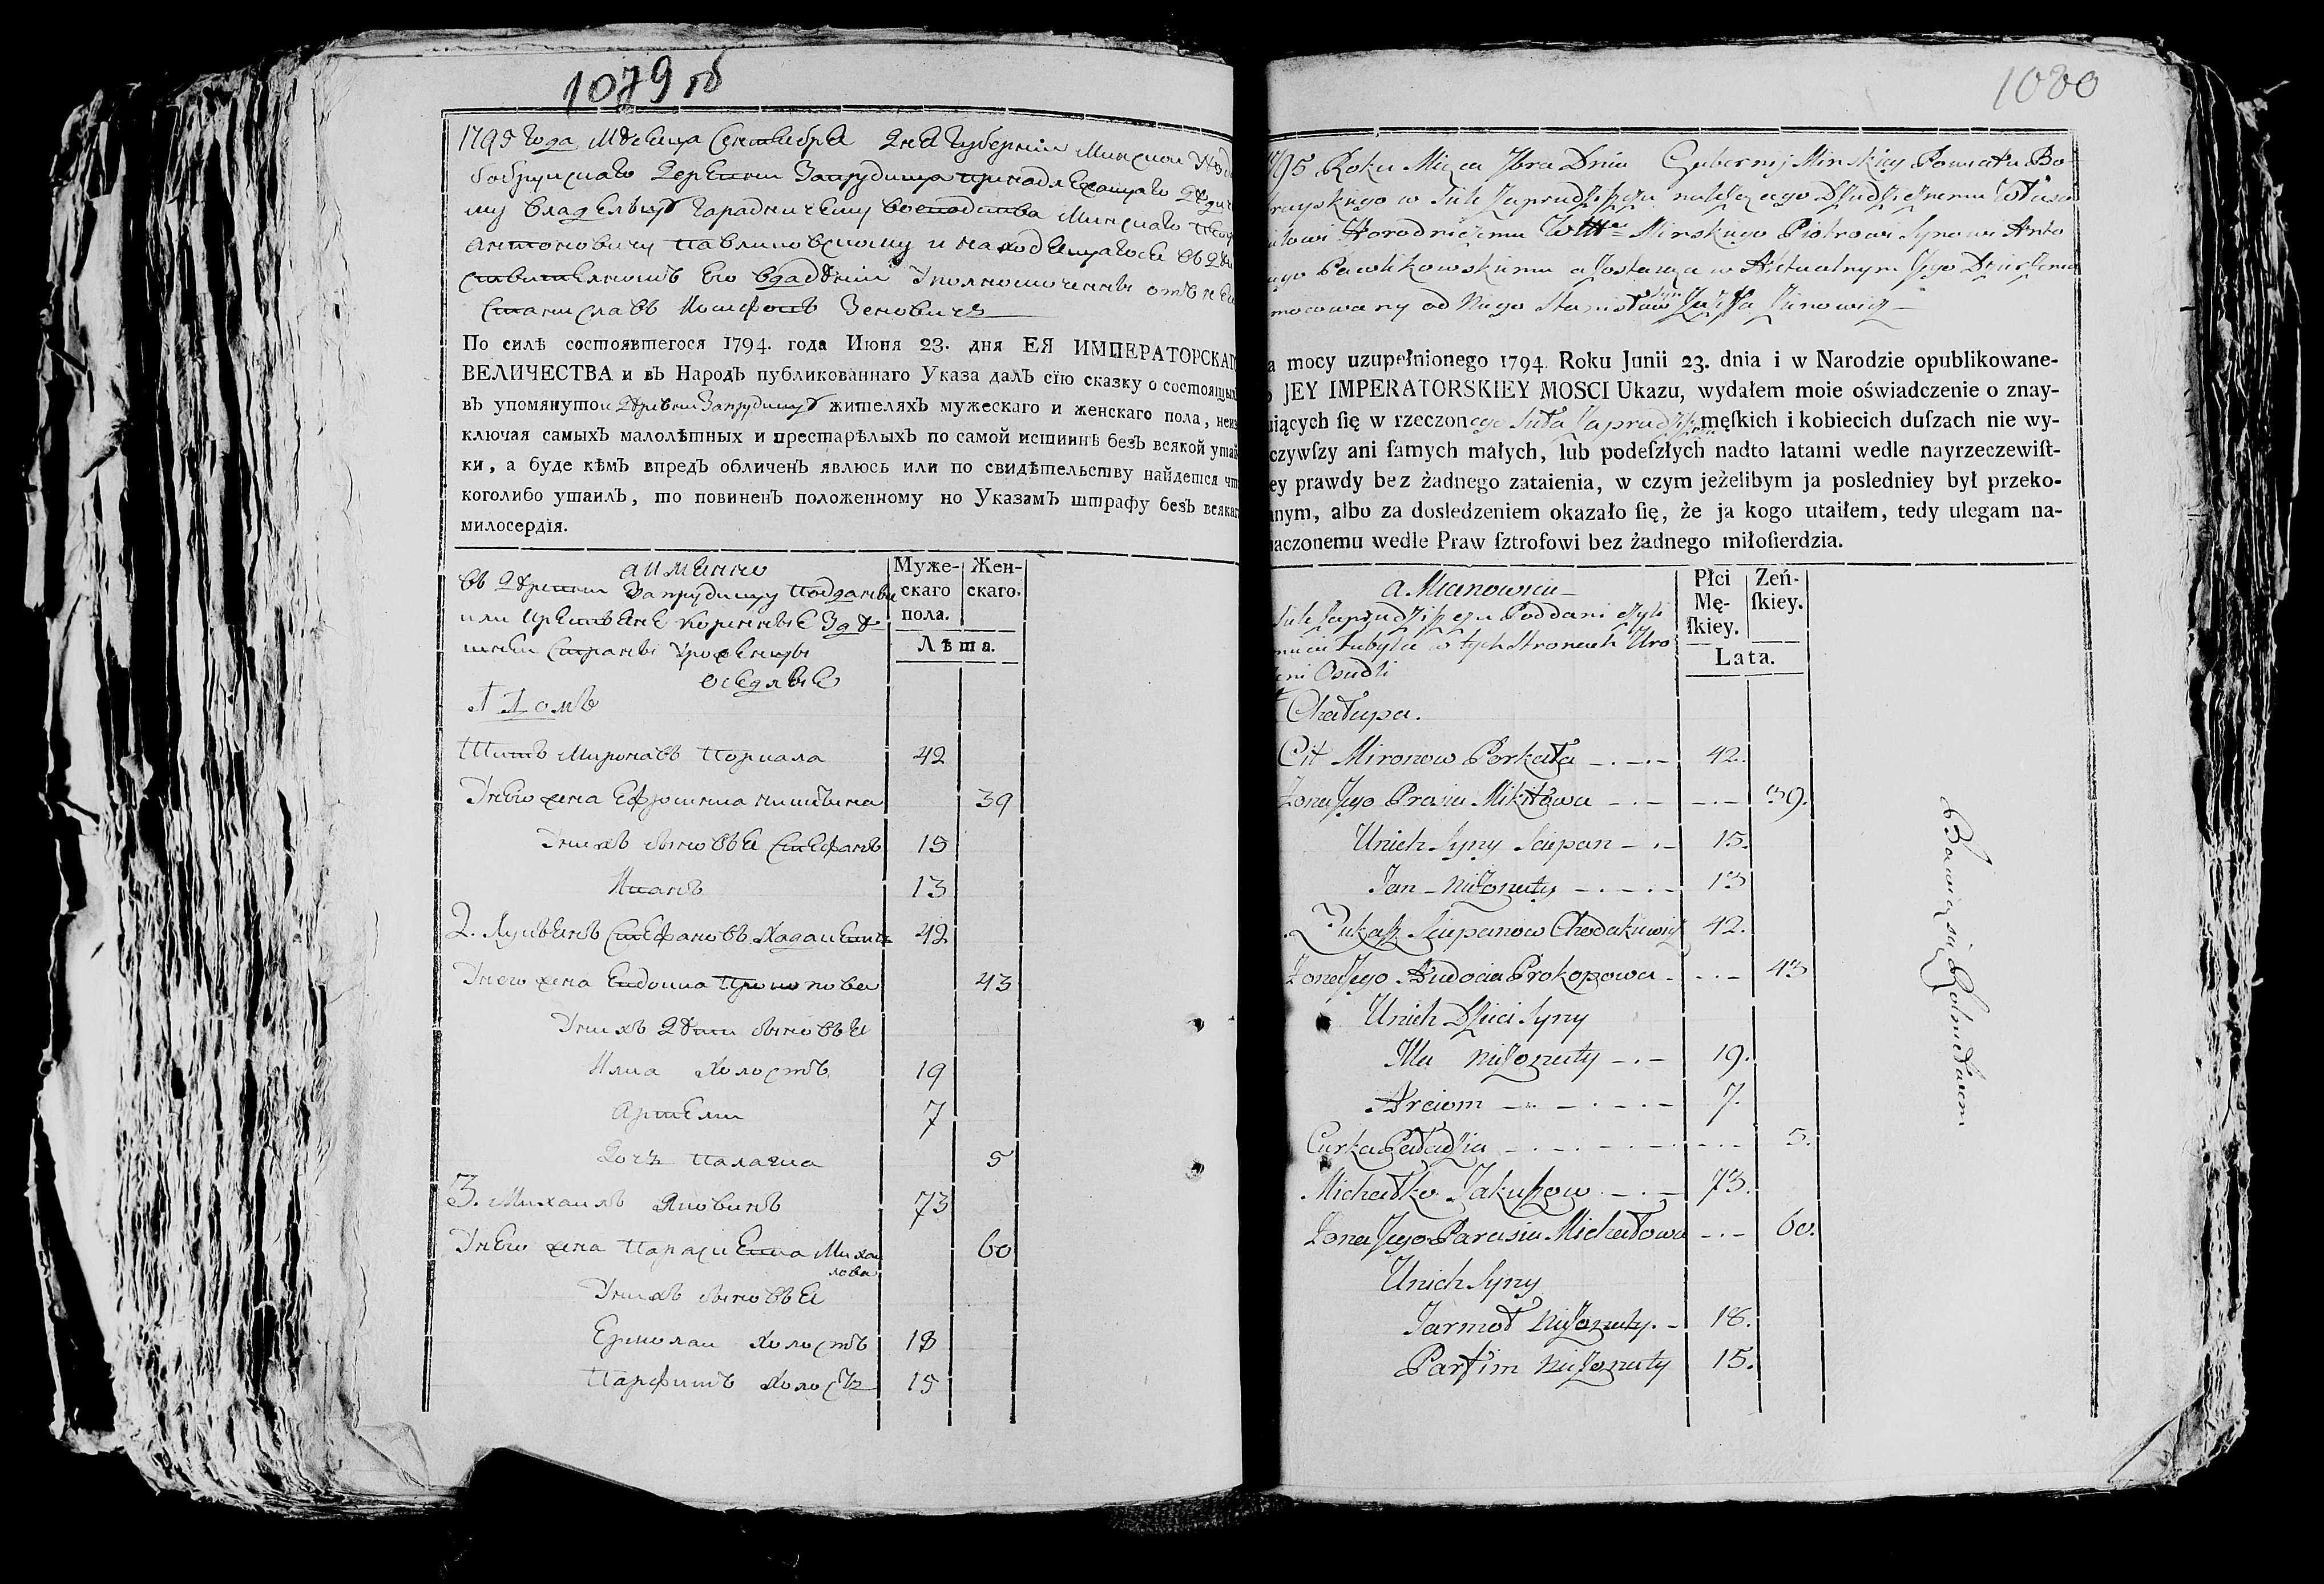 1079 об
1795 года Мѣсеца Сентебра Дня Губерніи Минской
бобруйского Деревни Запрудища принадлежащаго
му владельцу Гарадничему воеводства Минскаго
Антоновичу Павликовскому и находещагосе въ
его владѣніи Уполномоченны отъ него
Станиславъ Іосифовъ Зеновичъ
По силѣ состоявшегося 1794. года Июня 23. дня ЕЯ ИМПЕРАТОРСКАГО
ВЕЛИЧЕСТВА и въ Народъ публикованнаго Указа далъ сїю сказку о состоящихъ
въ упомянутои Деревни Запрудищу жителяхъ мужескаго и женскаго пола, неис
ключая самыхъ малолѣтныхъ и престарѣлыхъ по самой истиннѣ безъ всякой утай
ки, а буде кѣмъ впредъ обличенъ явлюсь или по свидѣтельству найдется что
коголибо утаилъ, то повиненъ положенному по Указамъ штрафу безъ всякаго
милосердїя.
аименно
въ Деревни Запрудищу подданые
или крестьяне коренные здѣ
шнеи стораны уроженцы
оседлые
Муже-
скаго
пола.
Жен-
скаго.
Лѣта.
1 Домъ
Титъ Миронавъ Поркала 42
Унего жена Ефросиниа Никитина 39
Унихъ сыновьа Стефанъ 15
Иванъ 13
2. Лукьянъ Стефановъ Хадакевичъ 42
Унего жена Евдокиа Прокопова 43
Унихъ Дѣти сыновьа
Илиа Холостъ 19
Артеми 7
Дочь Палагиа 5
3. Михаилъ Яковлевъ 73
Унего жена Параскевиа Михаи
лова 60
Унихъ сыновьа
Ермолаи Холостъ 18
Парфинъ Холостъ 15
1080
1795 Roku Mięca 7bra Dnia Gubernij Minskiey Powiatu Bo-
bruyskiego w Siele Zaprudziszczu należącego Dziedzicznemu Włásci
cielowi Horodniczemu Wttwa Minskiego Piotrowi Synowi Anto
niego Pawlikowskiemu a Zostaiąca w Aktualnym Jego Dzierżeniu
mocowany od Niego Stanisław Syn Józefa Zienowicz
a mocy uzupełnionego 1794. Roku Junii 23. dnia i w Narodzie opublikowane-
o JEY IMPERATORSKIEY MOSCI Ukazu, wydałem moie oświadczenie o znay-
uiących ſię w rzeczonego Sioła Zaprudziszcza męſkich i kobiecich duſzach nie wy-
czywſzy ani ſamych małych, lub podeſzłych nadto latami wedle nayrzeczewiſt-
ey prawdy bez żadnego zataienia, w czym jeżelibym ja posledniey był przeko-
anym, albo za dosledzeniem okazało ſię, że ja kogo utaiłem, tedy ulegam na-
naczonemu wedle Praw ſztrofowi bez żadnego miłoſierdzia.
a Mianowicie
Siele Zaprudziszczu Poddani czyli
Tubylce w tych Stronach Uro
eni Osiedli
Płci
Mę-
ſkiey.
Żeń-
ſkiey.
Lata.
Chałupa.
Cit Mironow Porkała 42.
Żona Jego Prosia Mikitowa 39.
U nich Syny Sciepan 15.
Jan Nieżonaty 13
Łukasz Sciepanow Chodakiewicz 42.
Żona Jego Audocia Prokopowa 43
U nich Dzieci Syny
Illa Nieżonaty 19.
Arciom 7.
Curka Pałaḑzia 5.
Michałko Jakubow 73.
Żona Jego Parasia Michałowa 60.
U nich Syny
Jarmoł Nieżonaty. 18.
Parfim Nieżonaty 15.
Bawią się Rolnictwem